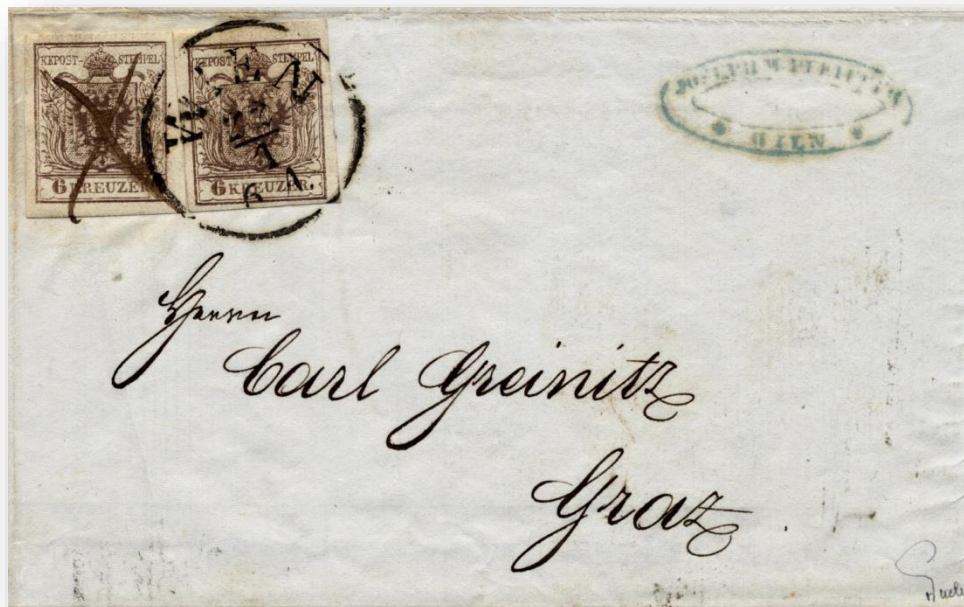 KKPOST-STEMPEL
6 KREUZER
KKPOST-STEMPEL
6 KREUZER
WIEN
22
1
6 A.
JOSEPH W. PFEIFFER
WIEN
Herrn
Carl Greinitz
Graz